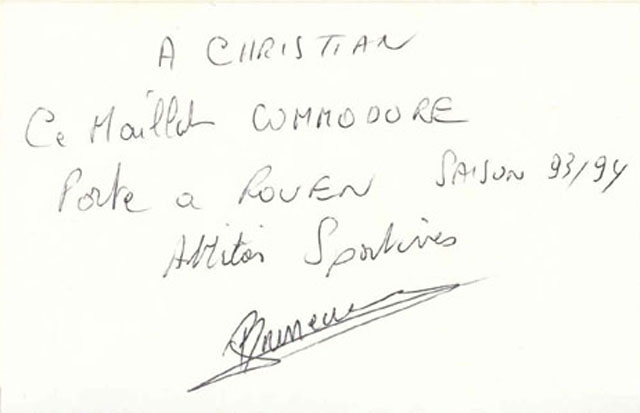 A CHRISTIAN
Ce Maillot COMMODORE
Porte a ROUEN SAISON 93/94
Amitiés Sportives